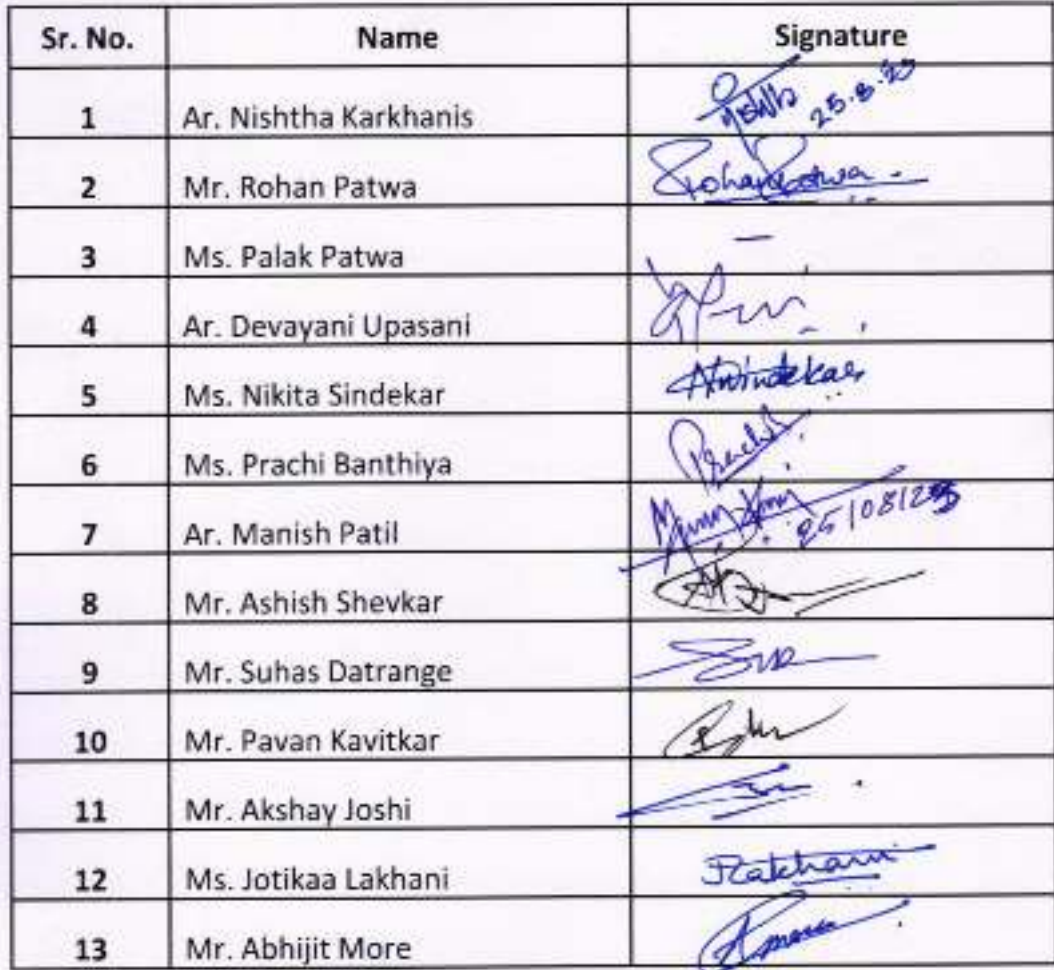 Sr. No. Name Signature
1 Ar. Nishtha Karkhanis
2 Mr. Rohan Patwa Rohan Patwa
3 Ms. Palak Patwa –
4 Ar. Devayani Upasani
5 Ms. Nikita Sindekar
6 Ms. Prachi Banthiya Prachi
7 Ar. Manish Patil
8 Mr. Ashish Shevkar
9 Mr. Suhas Datrange
10 Mr. Pavan Kavitkar
11 Mr. Akshay Joshi
12 Ms. Jotikaa Lakhani
13 Mr. Abhijit More